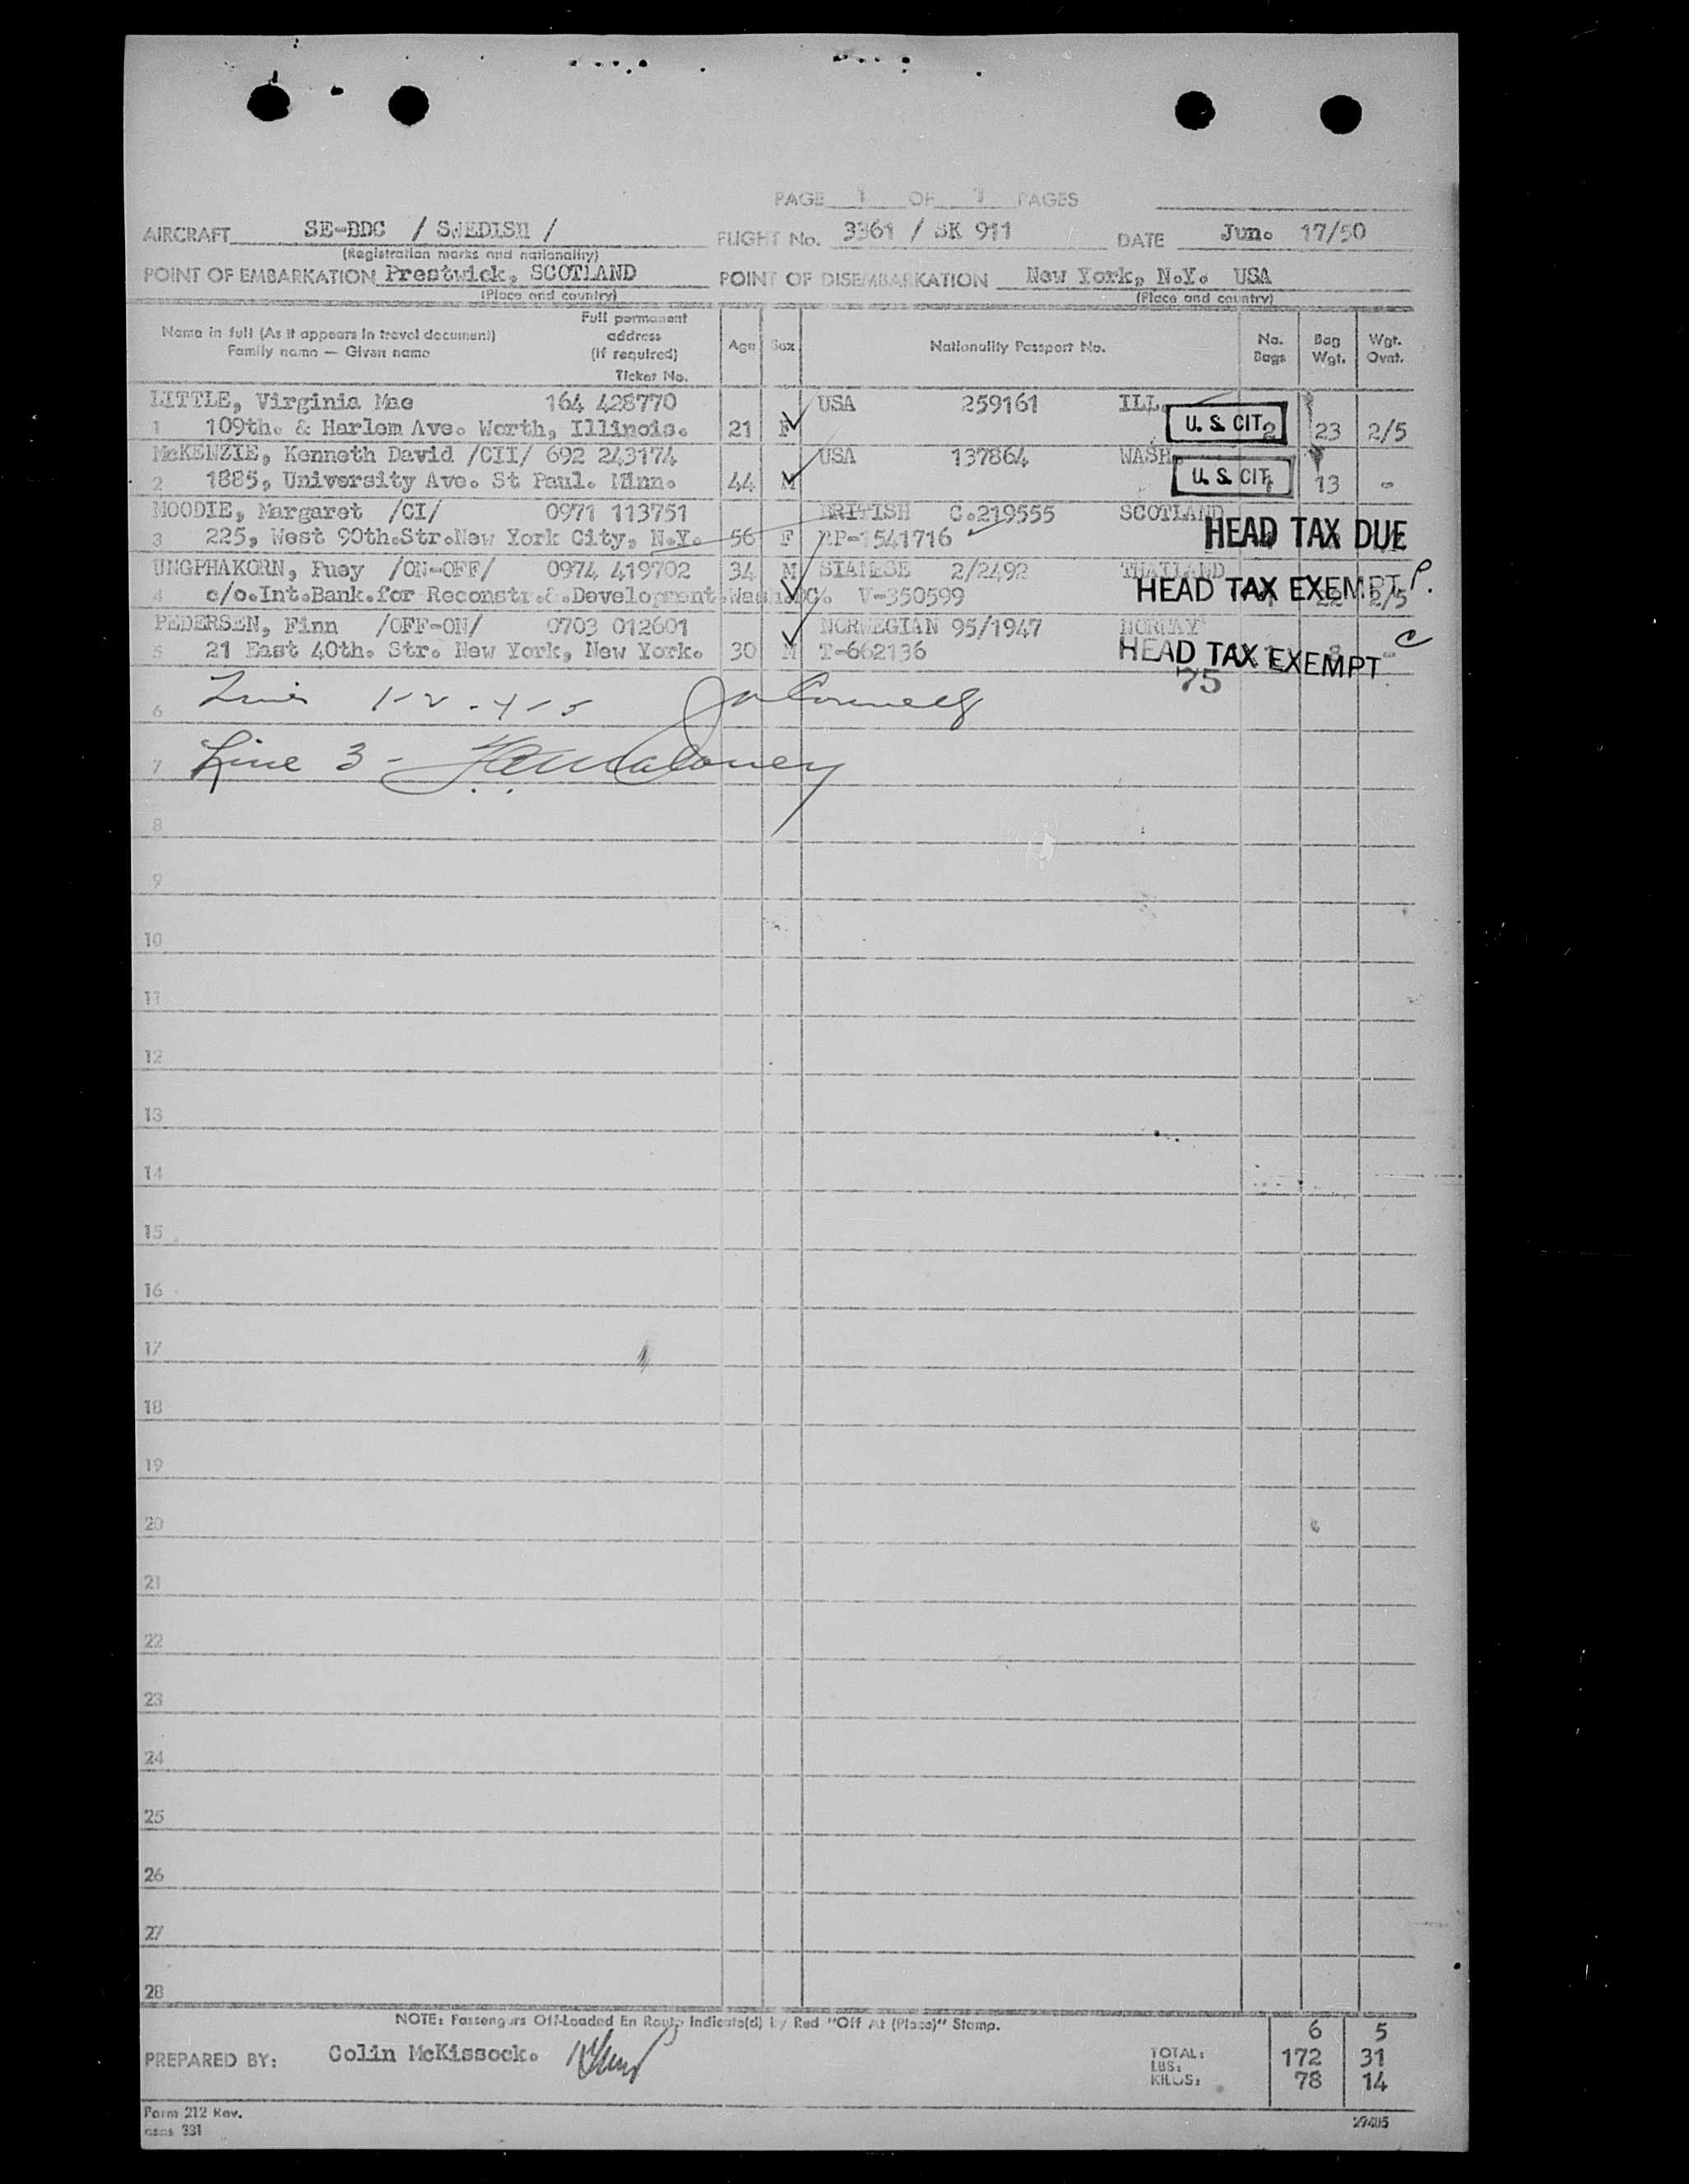 PAGE 1 OF 1 PAGES
AIRCRAFT SE-BDC / SWEDISH / FLIGHT No. 3361 / SK 911 DATE Jun. 17/50
(Registration marks and nationality)
POINT OF EMBARKATION Prestwick, SCOTLAND POINT OF DISEMBARKATION New York, N.Y. USA
(Place and country) (Place and country)
Name in full (As it appears in travel document) Family name — Given name Full permanent address (If required) Ticket No. Age Sex Nationality Passport No. No. Bags Bag Wgt. Wgt. Ovct.
LITTLE, Virginia Mae 164 428770 USA 259161 ILL.
1 109th. & Harlem Ave. Worth, Illinois. 21 F U. S. CIT. 2 23 2/5
McKENZIE, Kenneth David /CII/ 692 243174 USA 137864 WASH.
2 1885, University Ave. St Paul. Minn. 44 M U. S. CIT. 13 -
MOODIE, Margaret /CI/ 0971 113751 BRITISH C.219555 SCOTLAND
3 225, West 90th.Str.New York City, N.Y. 56 F RP-1541716 HEAD TAX DUE
UNGPHAKORN, Puey /ON-OFF/ 0974 419702 34 M SIAMESE 2/2492 THAILAND
4 c/o.Int.Bank.for Reconstr.&.Development.Wash.DC. V-350599 HEAD TAX EXEMPT 22 2/5 P.
PEDERSEN, Finn /OFF-ON/ 0703 012601 NORWEGIAN 95/1947 NORWAY
5 21 East 40th. Str. New York, New York. 30 M T-662136 HEAD TAX EXEMPT C
75
6 1-2-4-5
7 Line 3-
8
9
10
11
12
13
14
15
16
17
18
19
20
21
22
23
24
25
26
27
28
NOTE: Passengers Off-Loaded En Route Indicate(d) by Red "Off At (Place)" Stamp.
6 5
PREPARED BY: Colin McKissock. TOTAL:
LBS: 172 31
KILOS: 78 14
Form 212 Rev.
331 29405